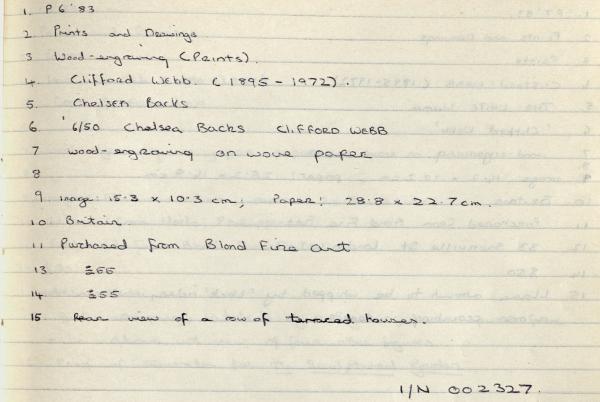 1. P6'83
2 Prints and Drawings
3 Wood-engraving (Prints).
4. Clifford Webb. (1895 - 1972).
5. Chelsea Backs
6. '6/50 Chelsea Backs CLIFFORD WEBB
7 wood-engraving on wove paper
8
9 image: 15.3 x 10.3 cm; Paper: 28.8 x 22.7cm.
10 Britain.
11 Purchased from Blond Fine Art
13 £55
14 £55
15 Rear view of a row of terraced houses.
I/N 002327.